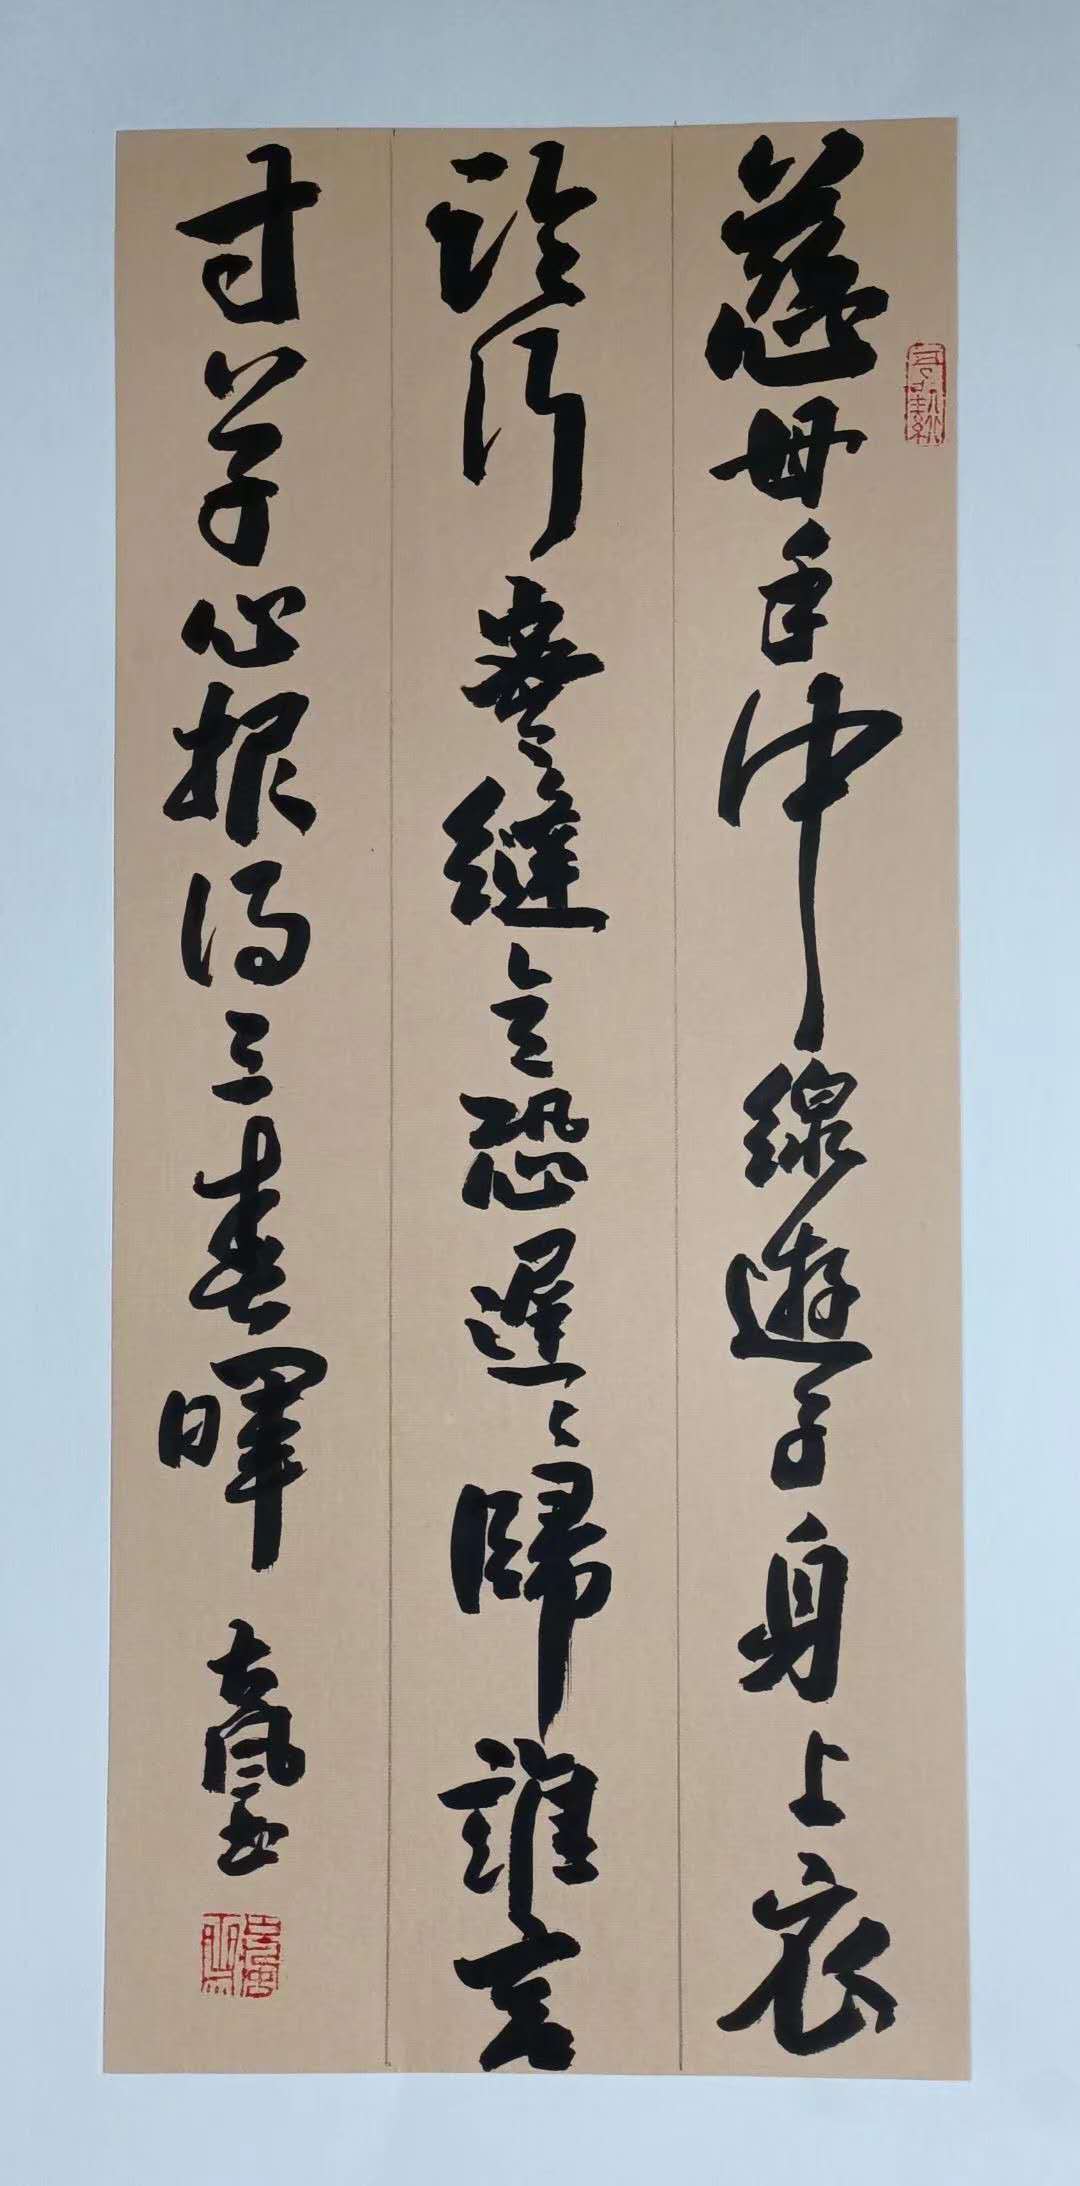 慈母手中線遊子身上衣
臨行密〻縫意恐遲〻歸誰言
寸草心報得三春暉